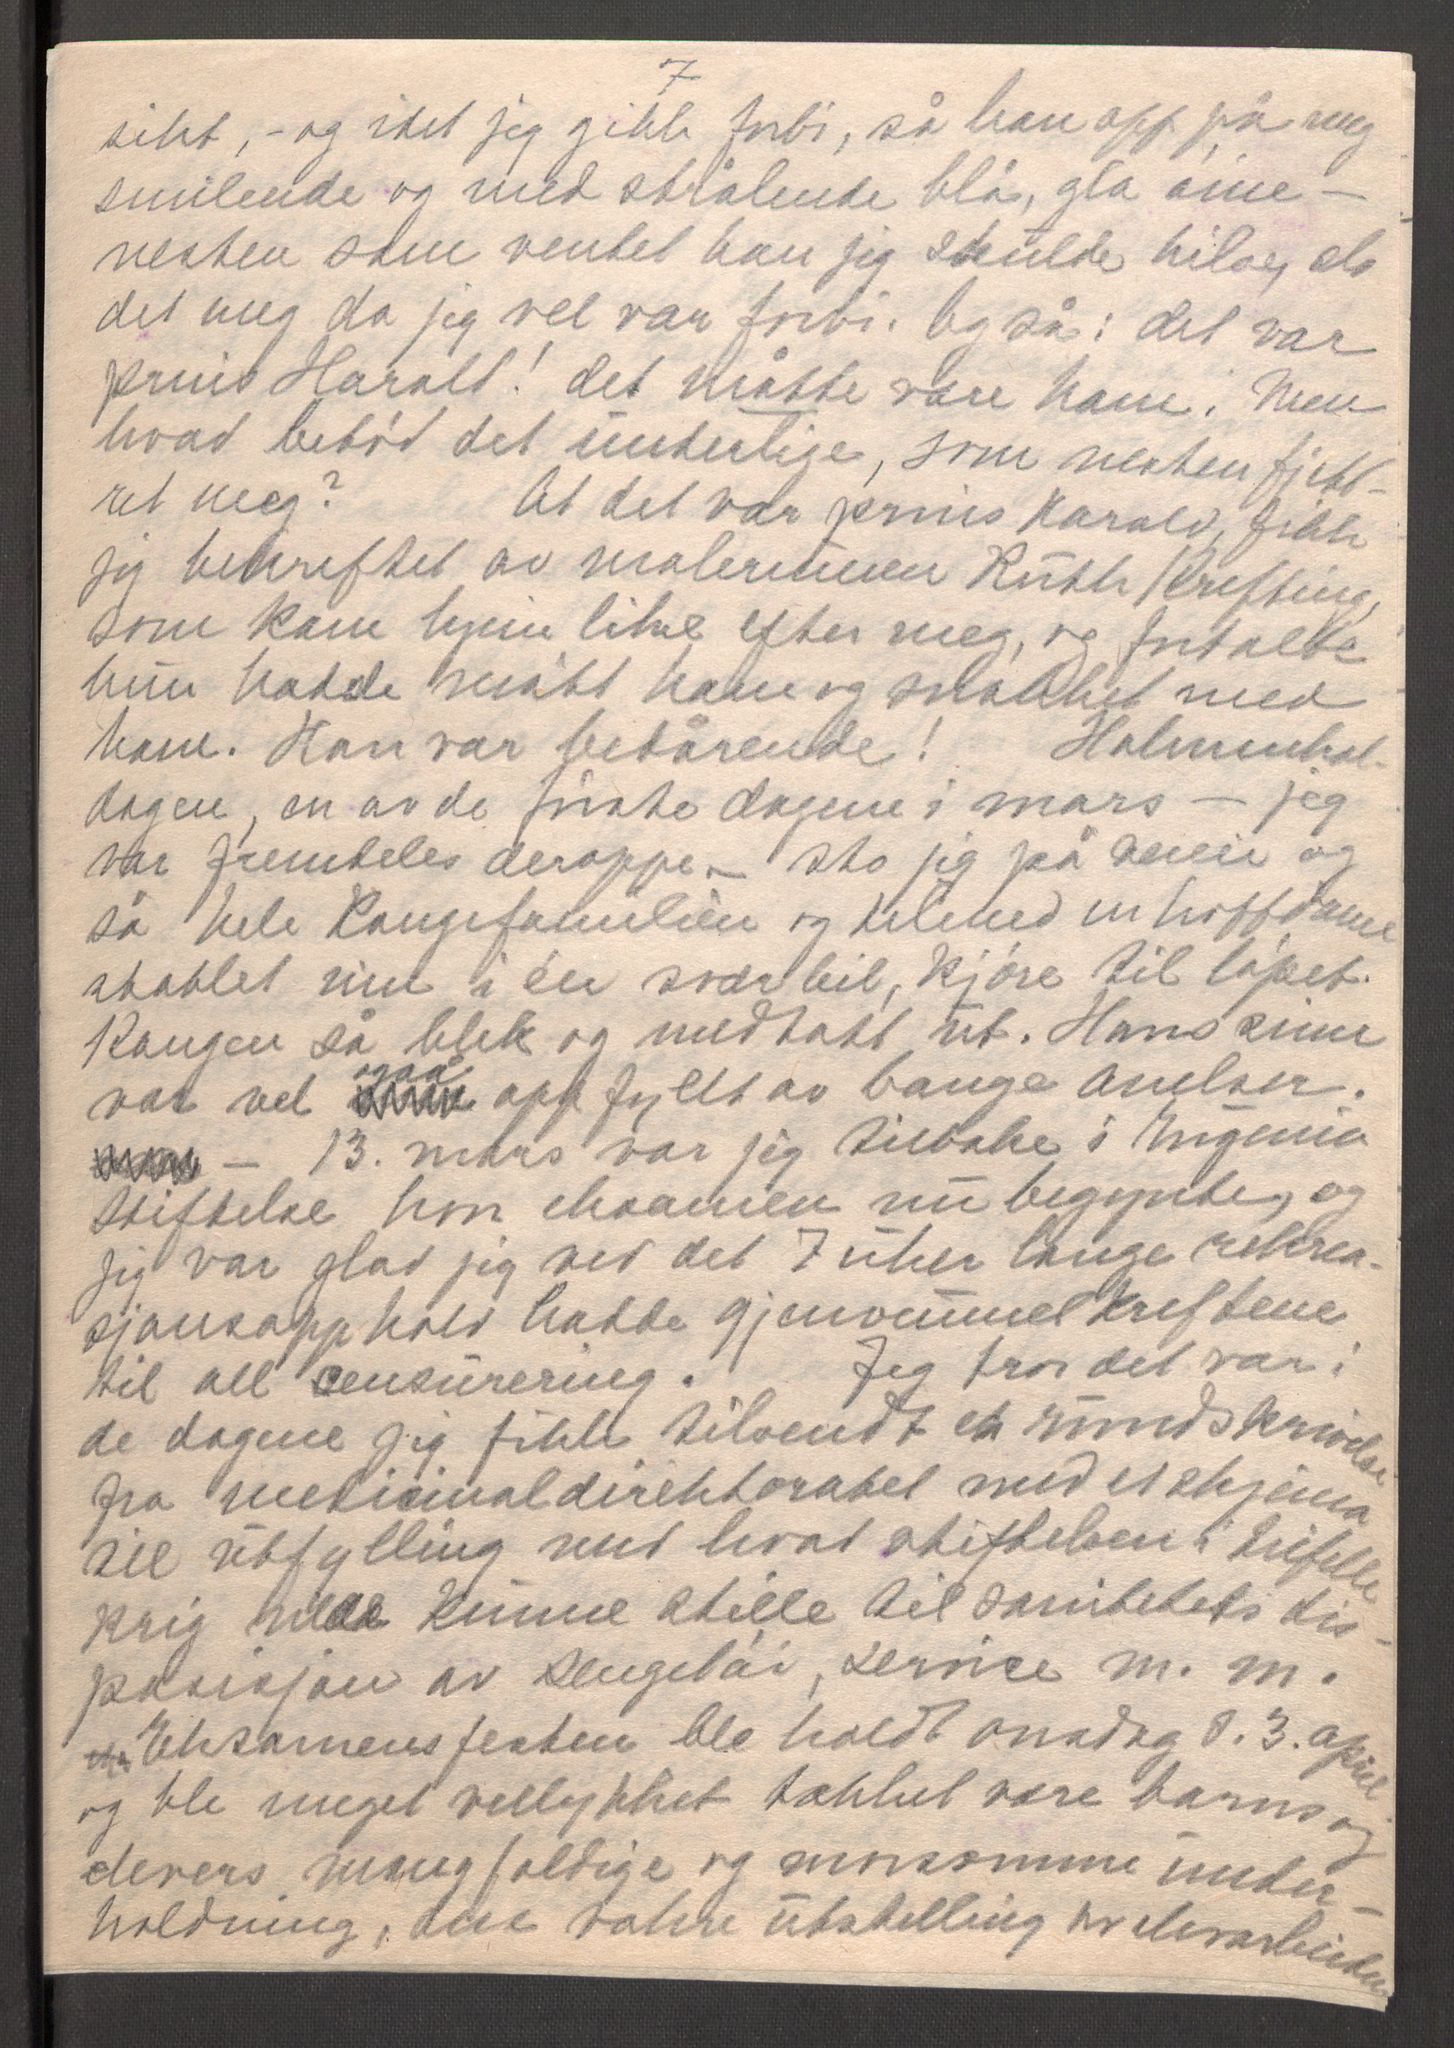 7
sikt, - og idet jeg gikk forbi, så han opp på meg
smilende og med strålende blå, gla öine -
nesten som ventet han jeg skulde hilse, slo
det meg da jeg vel var forbi. Og så: det var
prins Harald! det måtte være ham. Men
hvad betöd det underlige, som nesten fjett-
ret meg? At det var prins Harald, fikk
jeg bekreftet av malerinnen Ruth Krefting,
som kom hjem like efter meg, og fortalte
hun hadde mött ham og snakket med
ham. Han var bedårende! Holmenkol-
dagen, en av de förste dagene i mars - jeg
var fremdeles deroppe - sto jeg på veien og
så hele Kongefamilien og tilmed en hoffdame
stablet inn i én svær bil, kjöre til löpet.
Kongen så blek og medtatt ut. Hans sinn
var vel også oppfyllt av bange anelser.
- 13. mars var jeg tilbake i Eugenia
stiftelse hvor eksamen nu begynte, og
jeg var glad jeg ved det 7 uker lange rekrea-
sjonsopphold hadde gjenvunnet kreftene
til all censurering. Jeg tror det var i
de dagene jeg fikk tilsendt en rundskrivelse
fra medicinaldirektoratet med et skjema
til utfylling med hvad stiftelsen i tilfelle
krig vilde kunne stille til sanitetets dis-
posisjon av sengetöi, service m. m.
Eksamensfesten ble holdt onsdag d. 3. april
og ble meget vellykket takket være barns og
elevers mangfoldige og morsomme under-
holdning, den vakre utstelling av elevarbeider